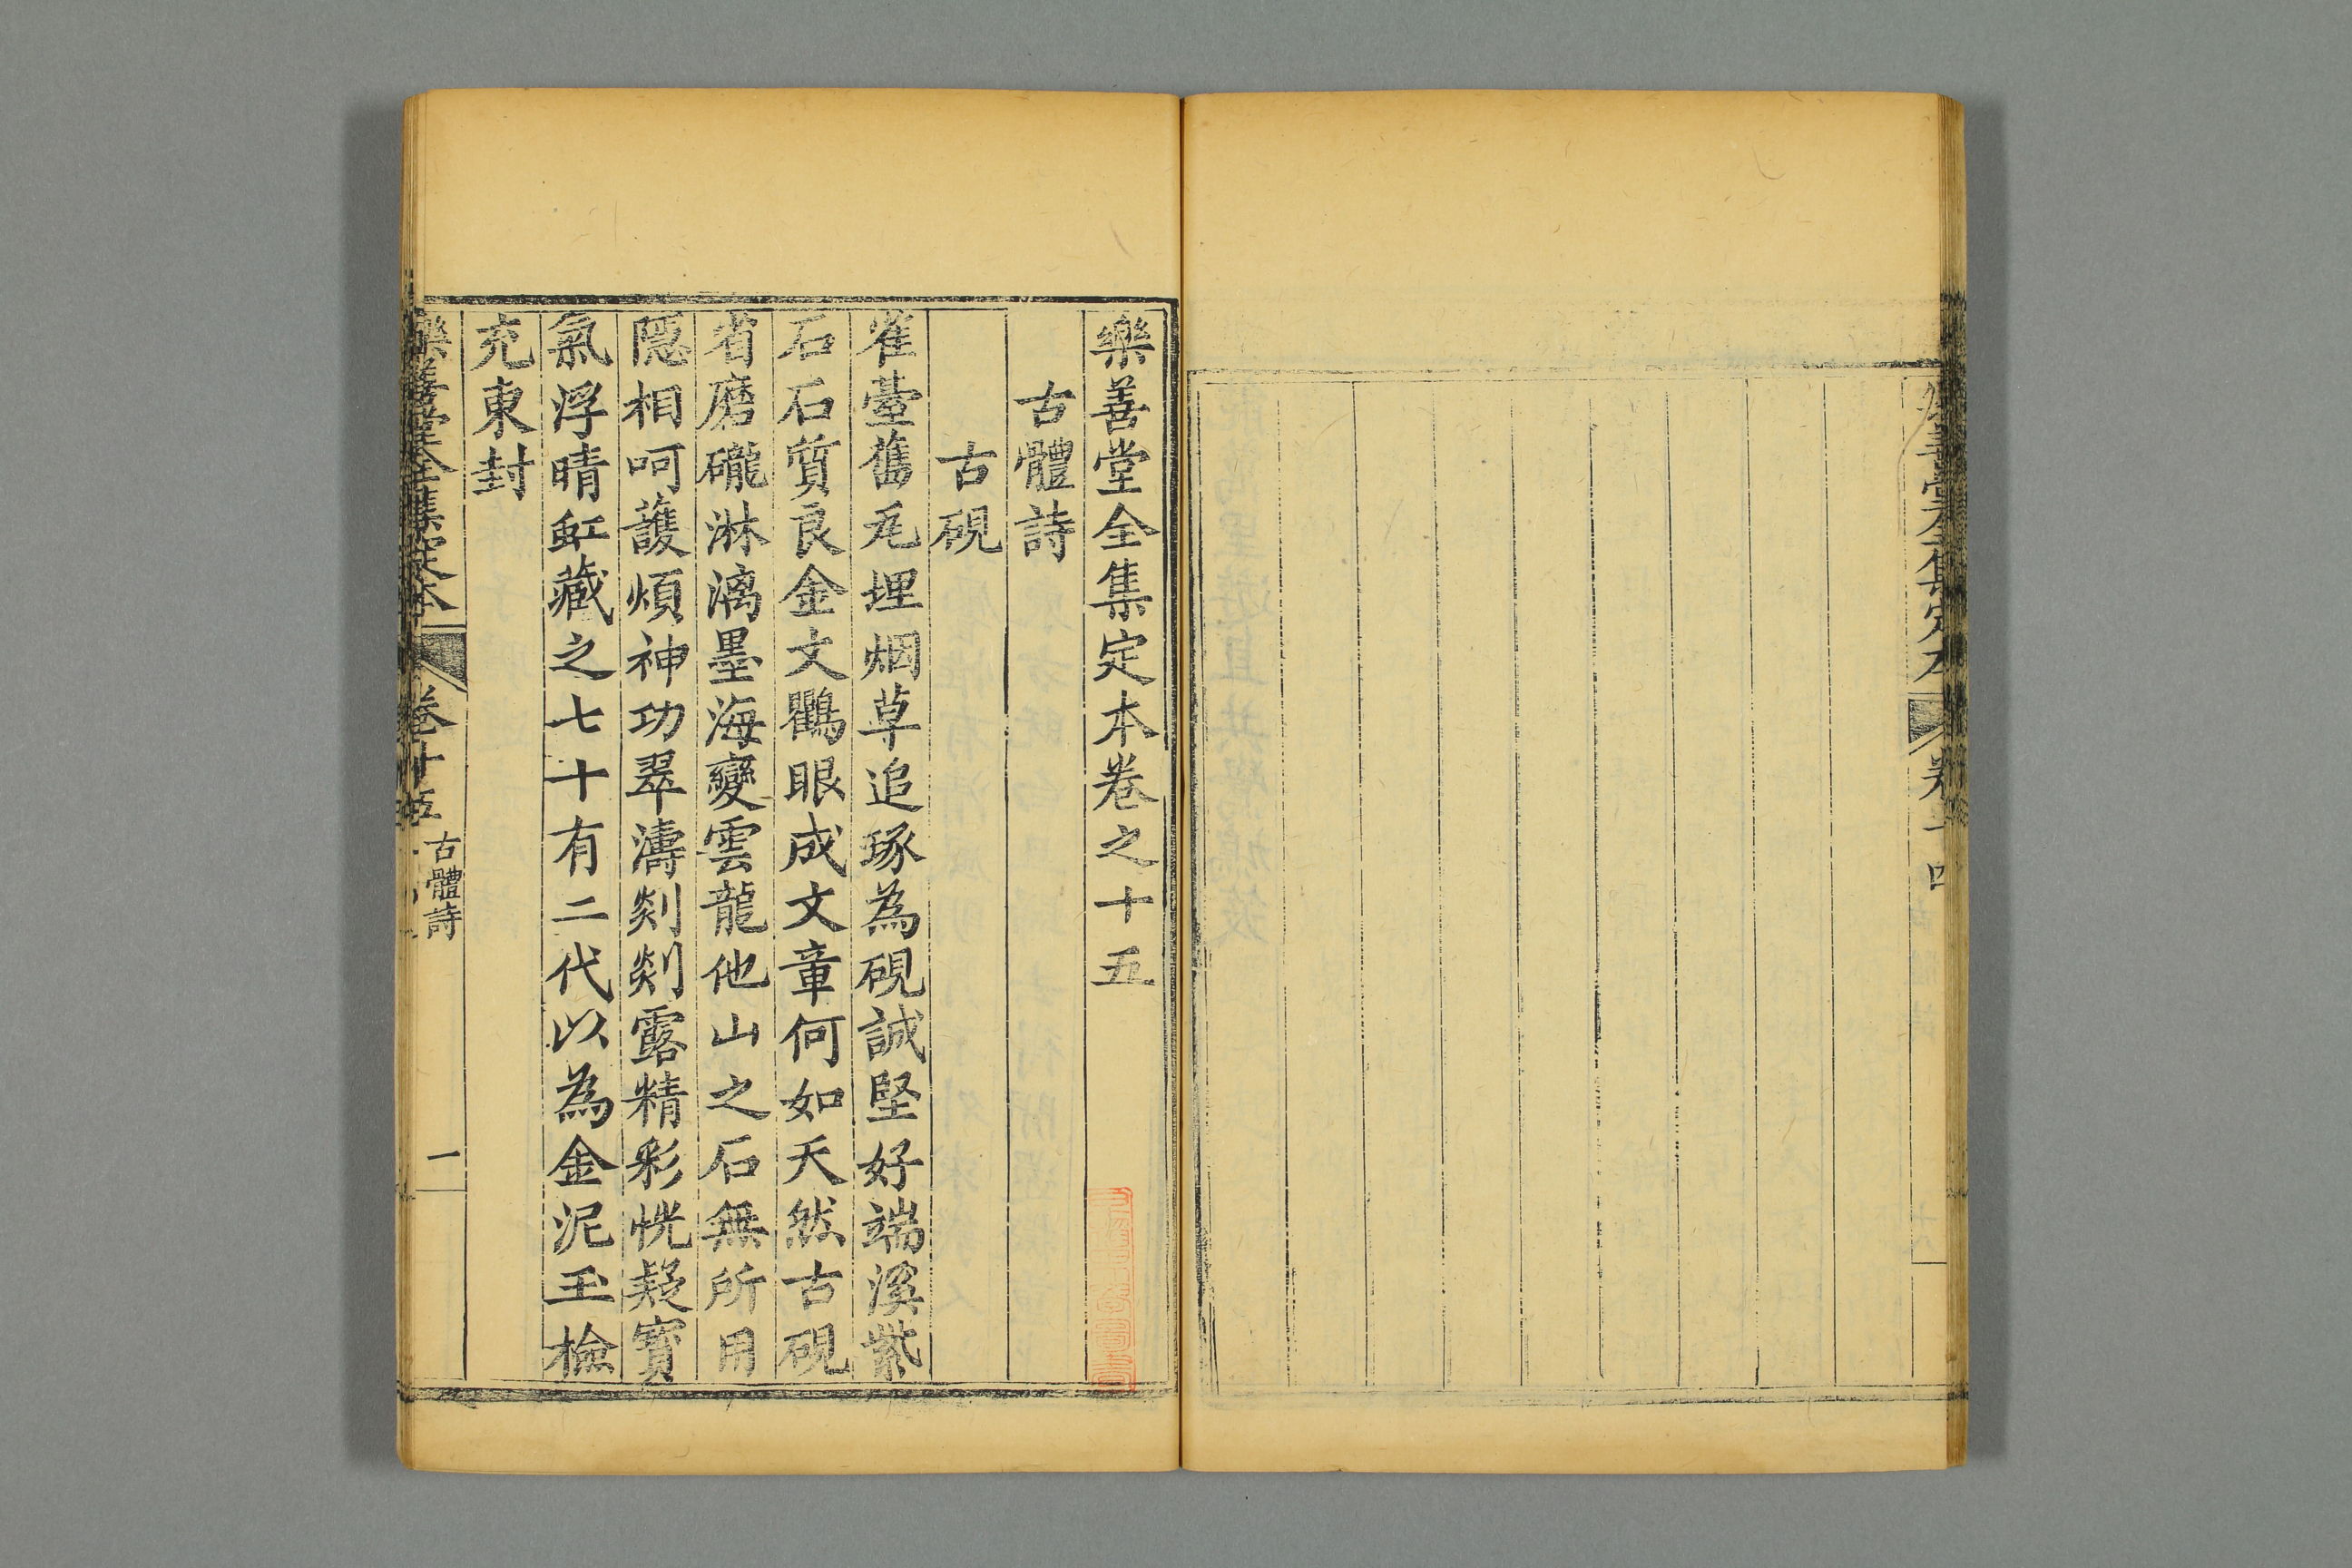 樂善堂全集定本
卷十四
樂善堂全集定本卷之十五
古體詩
古硯
雀臺舊瓦埋烟草追琢為硯誠堅好端溪紫
石石質良金文鸜眼成文章何如天然古硯
省磨礲淋漓墨海變雲龍他山之石無所用
隠相呵護煩神功翠濤剡剡露精彩恍疑寳
氣浮晴虹藏之七十有二代以為金泥玉檢
充東封
樂善堂全集定本
卷十五
古體詩
一